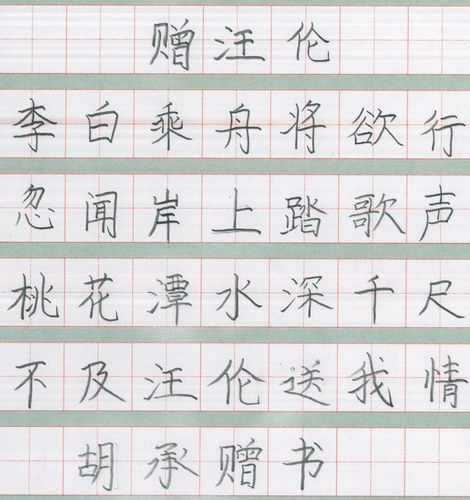 赠汪伦
李白乘舟将欲行
忽闻岸上踏歌声
桃花潭水深千尺
不及汪伦送我情
胡承赠书